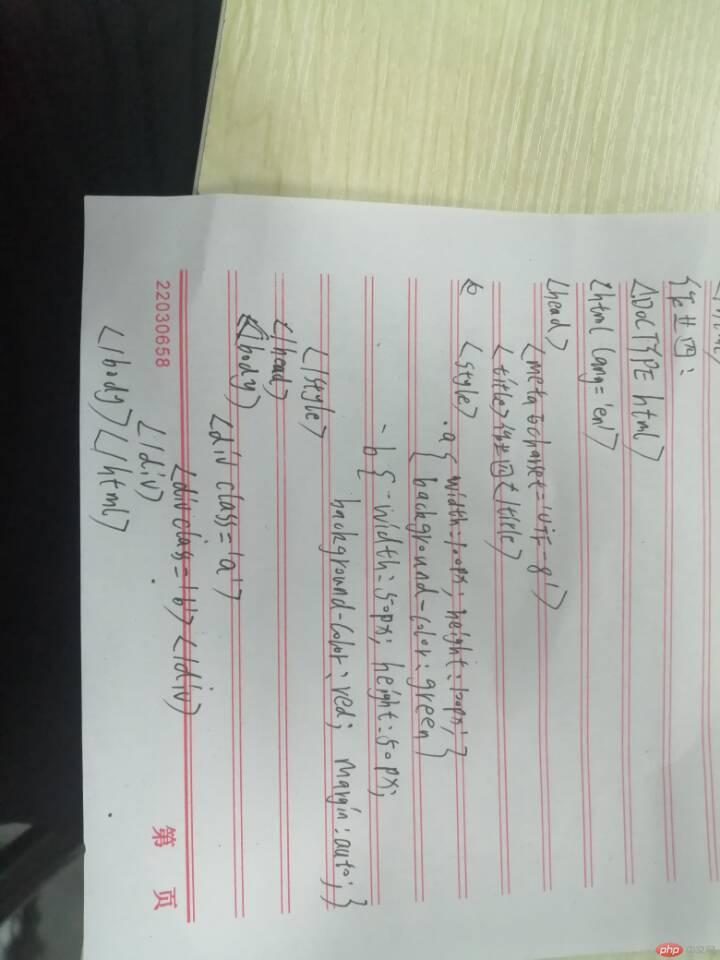 作业四:
<!DOCTYPE html>
<html lang='en'>
<head>
<meta charset='UTF-8'>
<title>作业四</title>
<style>
.a{ width:100px; height:100px;}
{ background-color:green}
.b{ width:50px; height:50px;
background-color:red; margin:auto;}
</style>
</head>
<body>
<div class='a'>
<div class='b'></div>
</div>
</body></html>
22030658
第 页
php 中文网